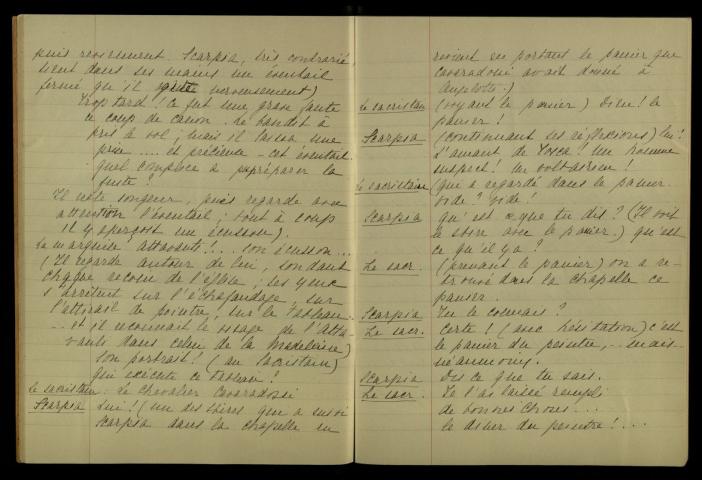 puis revienment. Scarpia, très contrarié,
tient dans ses mains un éventail
fermé qu'il agite nerveusement)
Trop tard! Ce fut une gran faute
ce coup de canon. Le bandit à
pris à vol; mais il laissa une
prise .... et précieuse - cet éventail.
quel complice à préparer la
fuite?
Il reste songeur, puis regarde avec
attention l'éventail; tout à coup
il y aperçoit un écusson).
La marquise Attavanti!... son écusson...
(Il regarde autour de lui, sondant
chaque recoin de l'église; ses yeux
s'arrêtent sur l'échafaudage, sur
l'attirail de peintre, sur le tableau..
... et il reconnait le visage de l'Atta-
vanti dans celui de la Madeleine)
Son portrait! (au sacristain)
qui exécuta ce tableau?
Le sacristain. Le chevalier Cavaradossi
Scarpia Lui! (un des sbires que a suivi
Scarpia dans la chapelle en
revient en portant le panier que
Cavaradossi avait donné à
Angelotti.)
Le sacristain (voyant le panier) Dieu! le
panier!
Scarpia (continuant ses réflexions) Lui!
L'amant de Tosca! Un homme
suspect! Un voltairien!
Le sacristain (qui a regardé dans le panier.
Vide? Vide!
Scarpia qu'est ce que tu dis? (Il voit
le sbire avec le panier) qu'est
ce qu'il y a?
Le sacr. (prenant le panier) on a re-
trouvé dans la chapelle ce
panier.
Scarpia Tu le connais?
Le sacr. Certe! (avec hésitation) c'est
le panier du peintre, .. mais..
néanmoins.
Scarpia Dis ce que tu sais.
Le sacr. Je l'ai laissé rempli
de bonnes choses...
le diner du peintre!...